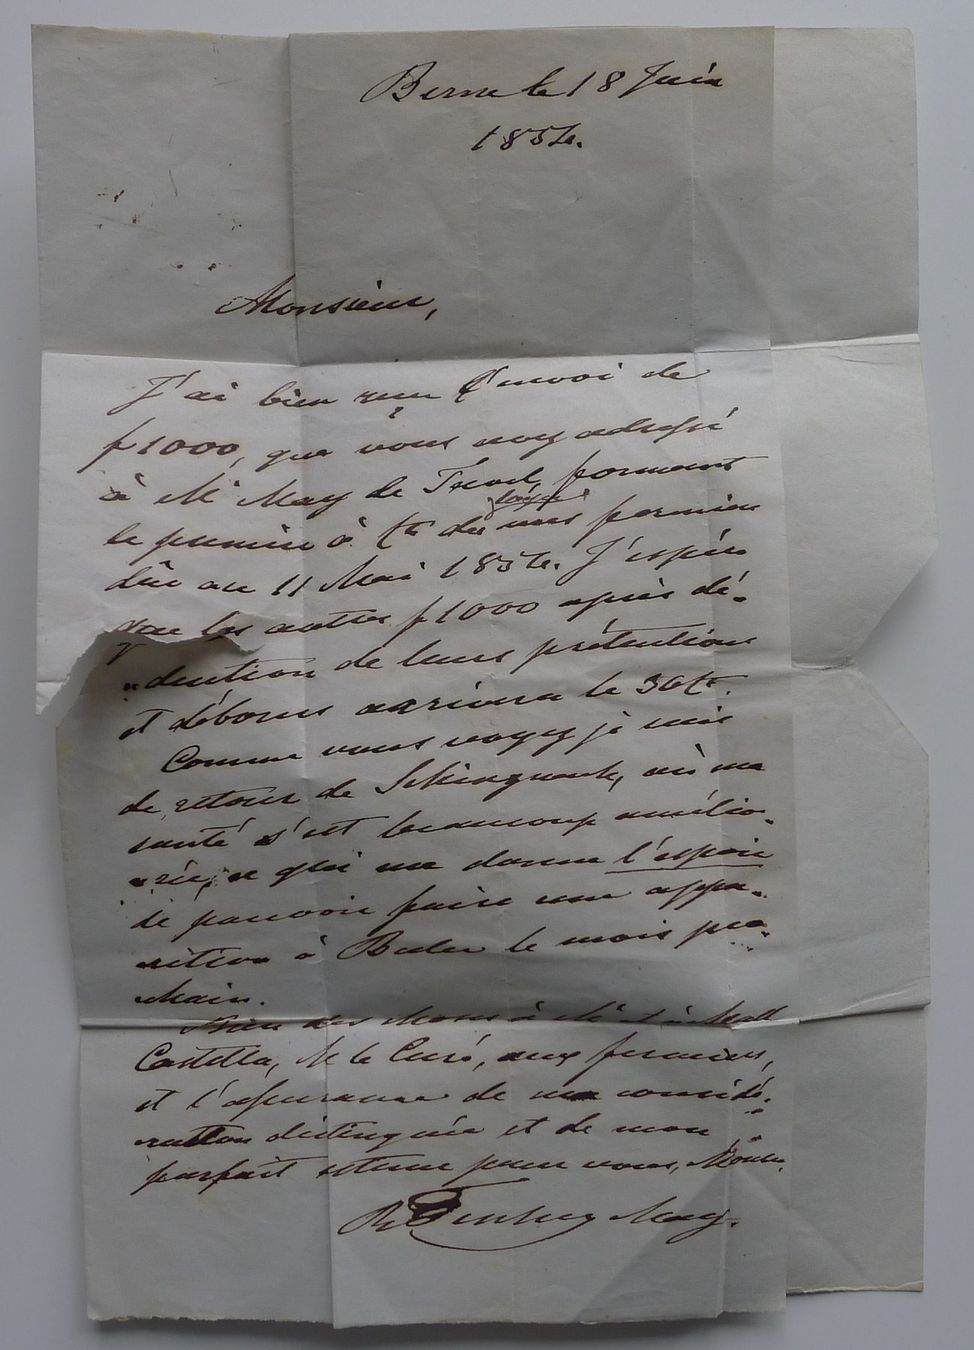 Berne le 18 Juin
1854.
Monsieur,
J'ai bien reçu l'envoi de
f 1000, que vous avez adressé
à Mr May de formant
le premier à cte du fermier
dûe au 11 Mai 1854. J'espère
que les autres f 1000 après dé-
-duction de leurs prétentions
et débours arrivera le 30 ct.
Comme vous voyez je suis
de retour de Schinznach, où ma
santé s'est beaucoup amélio-
-rée, ce qui me donne l'espoir
de pouvoir faire une appa-
-rition à Buler le mois pro-
-chain.
Bien des à Mr et à
Castella, Mr le Curé, aux fermiers,
et l'assurance de ma considé-
-ration distinguée et de mon
parfait estime pour vous, Monsr.
May.